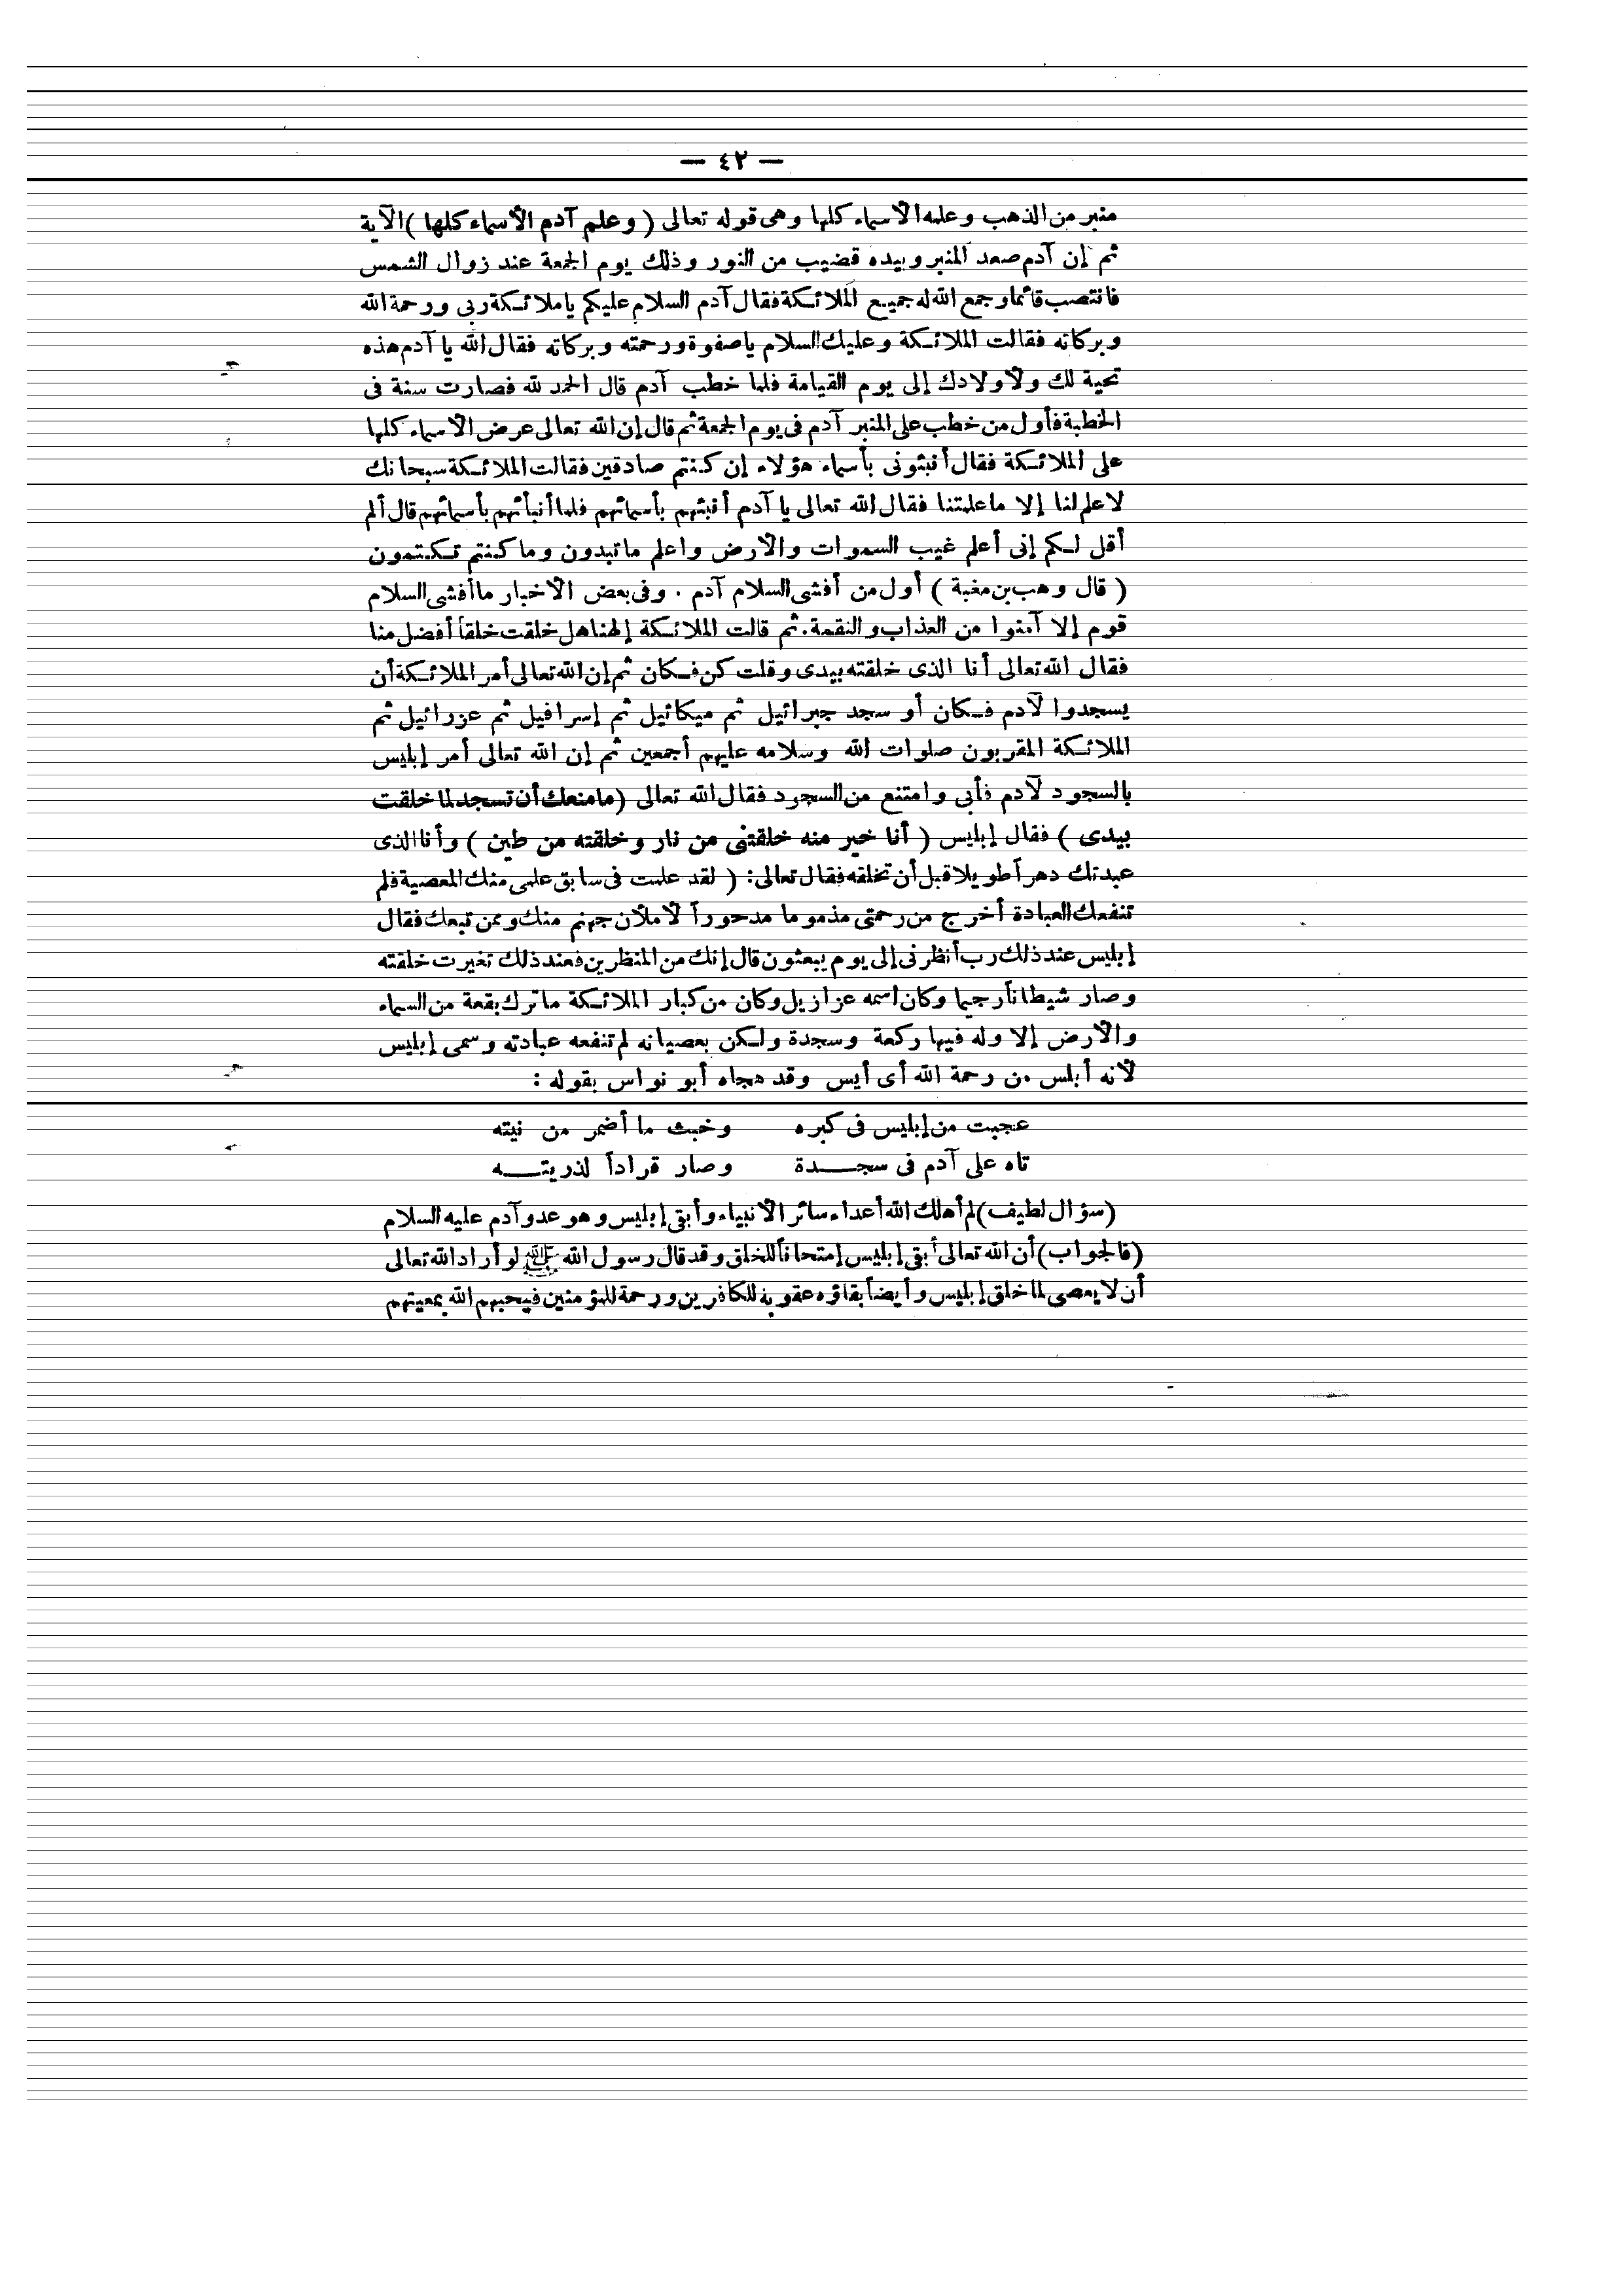 — ٤٢ —
منبر من الذهب وعلمه الأسماء كلها وهى قوله تعالى ( وعلم آدم الأسماء كلها ) الآية
ثم إن آدم صعد المنبر وبيده قضيب من النور وذلك يوم الجمعة عند زوال الشمس
فانتصب قائما وجمع الله له جميع الملائكة فقال آدم السلام عليكم ياملائكة ربى ورحمة الله
وبركاته فقالت الملائكة وعليك السلام ياصفوة ورحمته وبركاته فقال الله يا آدم هذه
تحية لك ولأولادك إلى يوم القيامة فلما خطب آدم قال الحمد لله فصارت سنة فى
الخطبة فأول من خطب على المنبر آدم فى يوم الجمعة ثم قال إن الله تعالى عرض الأسماء كلها
على الملائكة فقال أنبئونى بأسماء هؤلاء إن كنتم صادقين فقالت الملائكة سبحانك
لاعلم لنا إلا ماعلمتنا فقال الله تعالى يا آدم أنبئهم بأسمائهم فلما أنبأهم بأسمائهم قال ألم
أقل لكم إنى أعلم غيب السموات والأرض واعلم ماتبدون وما كنتم تكتمون
( قال وهب بن مغبة ) أول من أفشى السلام آدم . وفى بعض الأخبار ما أفشى السلام
قوم إلا آمنوا من العذاب والنقمة . ثم قالت الملائكة إلهنا هل خلقت خلقاً أفضل منا
فقال الله تعالى أنا الذى خلقته بيدى وقلت كن فكان ثم إن الله تعالى أمر الملائكة أن
يسجدوا لآدم فكان أو سجد جبرائيل ثم ميكائيل ثم إسرافيل ثم عزرائيل ثم
الملائكة المقربون صلوات الله وسلامه عليهم أجمعين ثم إن الله تعالى أمر إبليس
بالسجود لآدم فأبى وامتنع من السجود فقال الله تعالى (مامنعك أن تسجد لما خلقت
بيدى ) فقال إبليس ( أنا خير منه خلقتنى من نار وخلقته من طين ) وأنا الذى
عبدتك دهراً طويلا قبل أن تخلقه فقال تعالى: ( لقد علمت فى سابق علمى منك المعصية فلم
تنفعك العبادة أخرج من رحمتى مذموما مدحوراً لأملأن جهنم منك وممن تبعك فقال
إبليس عند ذلك رب أنظرنى إلى يوم يبعثون قال إنك من المنظرين فعند ذلك تغيرت خلقته
وصار شيطاناً رجيما وكان اسمه عزازيل وكان من كبار الملائكة ماترك بقعة من السماء
والأرض إلا وله فيها ركعة وسجدة ولكن بعصيانه لم تنفعه عبادته وسمى إبليس
لأنه أبلس من رحمة الله أى أيس وقد هجاه أبو نواس بقوله :
عجبت من إبليس فى كبره وخبث ما أضمر من نيته
تاه على آدم فى سجـدة وصار قراداً لذريتـه
(سؤال لطيف) لم أهلك الله أعداء سائر الأنبياء وأبقى إبليس وهو عدو آدم عليه السلام
(فالجواب) أن الله تعالى أبقى إبليس إمتحاناً للخلق وقد قال رسول الله ﷺ لو أراد الله تعالى
أن لا يعصى لما خلق إبليس وأيضاً بقاؤه عقوبة للكافرين ورحمة للمؤمنين فيحبهم الله بمعيتهم